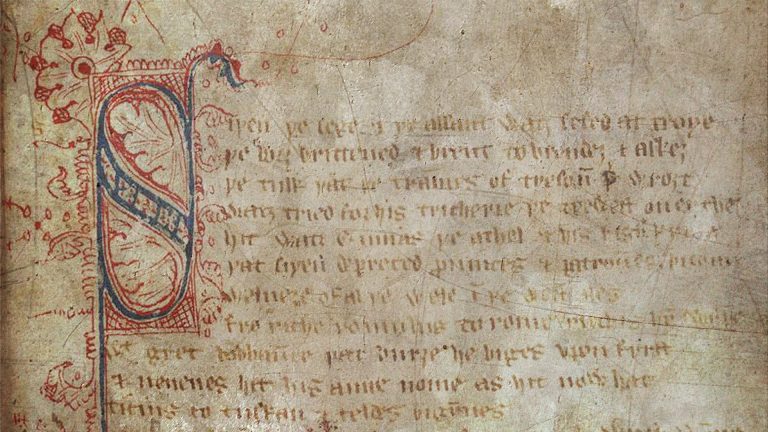 Siþen þe sege & þe assaut watz sesed at troye
þe borȝ brittened & brent to brondeȝ & askez
þe tulk þat þe trāmes of tresoun þ̉ wroȝt
watz tried for his tricherie þe trewest on erthe
hit watz Ennias þe athel & his highe kynde
þat siþen depreced prouinces & patrounes bicome
welneȝe of al þe wele ī þe west iles
fro riche romulus to rome ricchis hym
gret bobbaūce þat burȝe he biges vpon fyrst
& neuenes hit his aune nome as hit now hat
ticius to tuskan & teldes bigȳnes